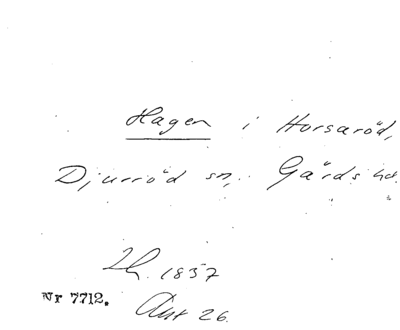 Hagen i Horsaröd,
Djurröd sn, Gärds hd.
Lh. 1857
Nr 7712. Akt 26.